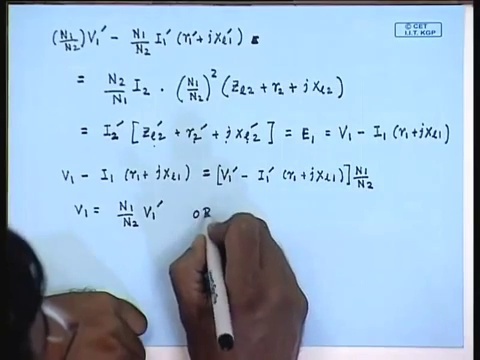 © CET
I.I.T. KGP
(N1/N2) V1' - N1/N2 I1' (r1' + j xl1') =
= N2/N1 I2 · (N1/N2)^2 (Zl2 + r2 + j xl2)
= I2' [Zl2' + r2' + j xl2'] = E1 = V1 - I1 (r1 + j xl1)
V1 - I1 (r1 + j xl1) = [V1' - I1' (r1 + j xl1)] N1/N2
V1 = N1/N2 V1' OR